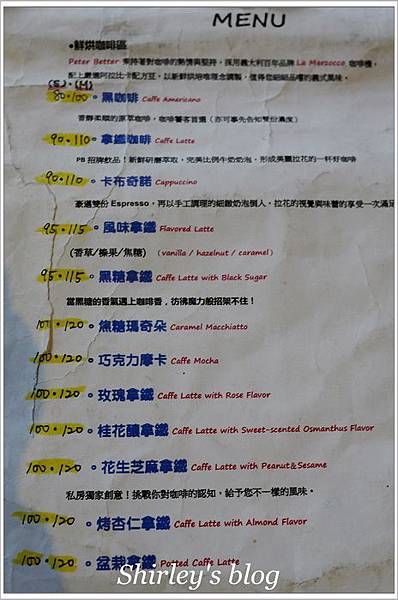 MENU
●鮮烘咖啡區
Peter Better 秉持著對咖啡的熱情與堅持，採用義大利百年品牌 La Marzocco 咖啡機，
配上嚴選阿拉比卡配方豆，以新鮮烘焙唯理念調製，值得您細細品嚐的義式風味。
(S)．(M)
80．100。黑咖啡 Caffe Americano
香醇柔順的原萃咖啡，咖啡饕客首選（亦可事先告知幫您濃度）
90．110。拿鐵咖啡 Caffe Latte
PB 招牌飲品！新鮮研磨萃取，完美比例牛奶奶泡，形成美麗拉花的一杯好咖啡
90．110。卡布奇諾 Cappuccino
豪邁雙份 Espresso，再以手工調理的細緻奶泡倒入，拉花的視覺與味蕾的享受一次滿足
95．115。風味拿鐵 Flavored Latte
(香草/榛果/焦糖) (vanilla / hazelnut / caramel)
95．115。黑糖拿鐵 Caffe Latte with Black Sugar
當黑糖的香氣遇上咖啡香，彷彿魔力般招架不住！
100．120。焦糖瑪奇朵 Caramel Macchiato
100．120。巧克力摩卡 Caffe Mocha
100．120。玫瑰拿鐵 Caffe Latte with Rose Flavor
100．120。桂花釀拿鐵 Caffe Latte with Sweet-scented Osmanthus Flavor
100．120。花生芝麻拿鐵 Caffe Latte with Peanut&Sesame
私房獨家創意！挑戰你對咖啡的認知，給予您不一樣的風味。
100．120。烤杏仁拿鐵 Caffe Latte with Almond Flavor
100．120。盆栽拿鐵 Potted Caffe Latte
Shirley's blog